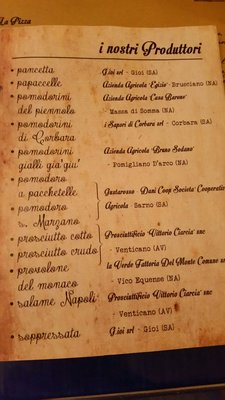 La Pizza
i nostri Produttori
• pancetta
Gioi srl - Gioi (SA)
• papaccelle
Azienda Agricola "Egizio" - Brusciano (NA)
• pomodorini
del piennolo
Azienda Agricola "Casa Barone"
- Massa di Somma (NA)
• pomodorini
di Corbara
i Sapori di Corbara srl - Corbara (SA)
• pomodorini
gialli già giu'
Azienda Agricola "Bruno Sodano"
- Pomigliano D'arco (NA)
• pomodoro
a pacchetelle
• pomodoro
S. Marzano
Gustarosso - Dani Coop Societa' Cooperativa
Agricola - Sarno (SA)
• prosciutto cotto
• prosciutto crudo
Prosciuttificio "Vittorio Ciarcia" snc
- Venticano (AV)
• provolone
del monaco
la Verde Fattoria Del Monte Comune snc
- Vico Equense (NA)
• salame Napoli
Prosciuttificio "Vittorio Ciarcia" snc
- Venticano (AV)
• soppressata
Gioi srl - Gioi (SA)